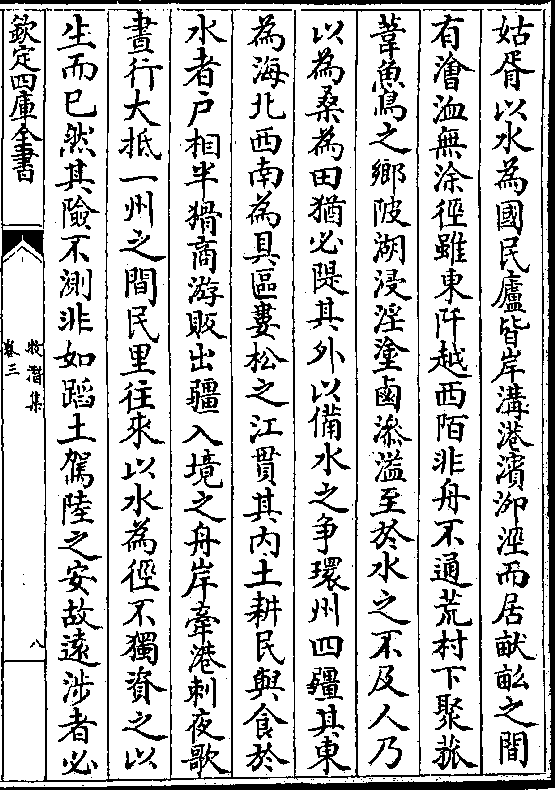 姑胥以水為國民廬皆岸溝港濱泖涇而居畎畝之間
有澮洫無涂徑雖東阡越西陌非舟不通荒村下聚菰
葦魚鳥之鄉陂湖浸淫塗鹵滲溢至於水之不及人乃
以為桑為田猶必隄其外以備水之争環州四疆其東
為海北西南為具區婁松之江貫其内土耕民與食於
水者户相半猾商游販出疆入境之舟岸牽港刺夜歌
晝行大抵一州之間民里往來以水為徑不獨資之以
生而已然其險不測非如蹈土駕陸之安故遠涉者必
欽定四庫全書
牧潛集
卷三
八